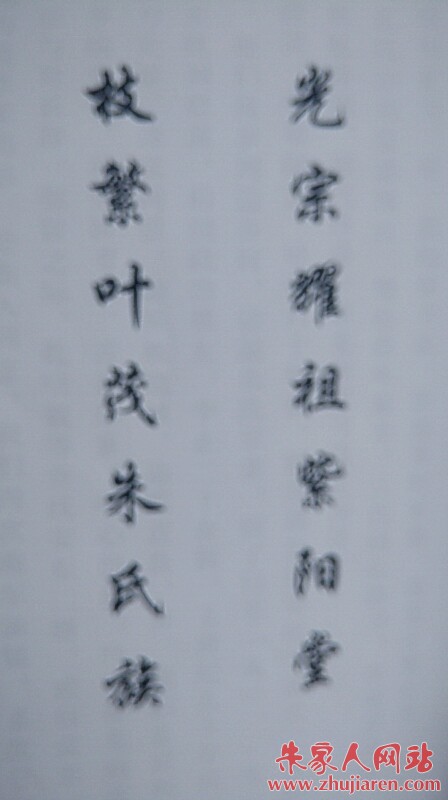 光宗耀祖紫阳堂
枝繁叶茂朱氏族
朱家人网站
www.zhujiaren.com